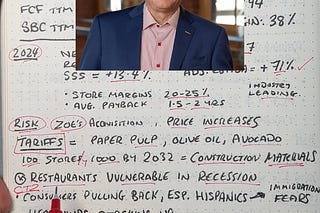 FCF TTM
SBC TTM
IN: 38%
2024
NE
SSS = +13.4%
ADJ.
= +71%
INDUSTRY
LEADING.
• STORE MARGINS 20-25%
• AVG. PAYBACK 1.5-2 YRS
RISK (ZOE'S) ACQUISITION, PRICE INCREASES
TARIFFS = PAPER PULP, OLIVE OIL, AVOCADO
100 STORES, 1000 BY 2032 = CONSTRUCTION MATERIALS
RESTAURANTS VULNERABLE IN RECESSION
CONSUMERS PULLING BACK, ESP. HISPANICS → IMMIGRATION
FEARS